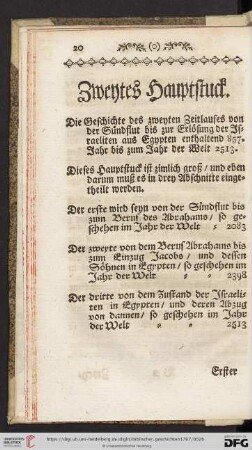 20 (o)
Zweytes Hauptstuck.
Die Geschichte des zweyten Zeitlaufes von
der Sündflut bis zur Erlösung der Is-
raeliten aus Egypten enthaltend 857.
Jahr bis zum Jahr der Welt 2513.
Dieses Hauptstuck ist zimlich groß / und eben
darum muß es in drey Abschnitte einge-
theilt werden.
Der erste wird seyn von der Sündflut bis
zum Beruf des Abrahams / so ge-
schehen im Jahr der Welt 2083
Der zweyte von dem Beruf Abrahams bis
zum Einzug Jacobs / und dessen
Söhnen in Egypten / so geschehen im
Jahr der Welt 2298
Der dritte von dem Zustand der Israeli-
ten in Egypten / und deren Abzug
von dannen / so geschehen im Jahr
der Welt 2513
Erster